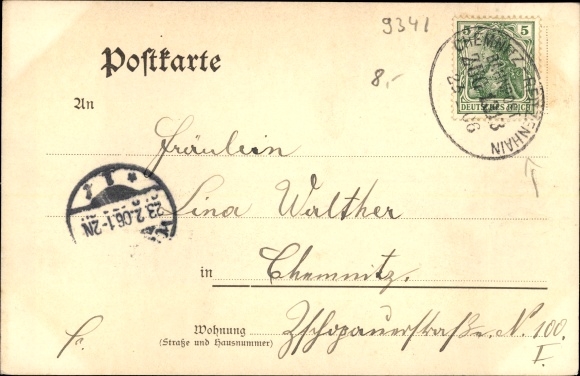 9341
8,-
5 5
DEUTSCHES REICH
CHEMNITZ REITZENHAIN
BAHNPOST
ZUG
23 06
Postkarte
An
Fräulein
Lina Walther
23.2.06.1-2N
in Chemnitz.
Wohnung Zschopauerstraße. N. 100.
(Straße und Hausnummer)
I.